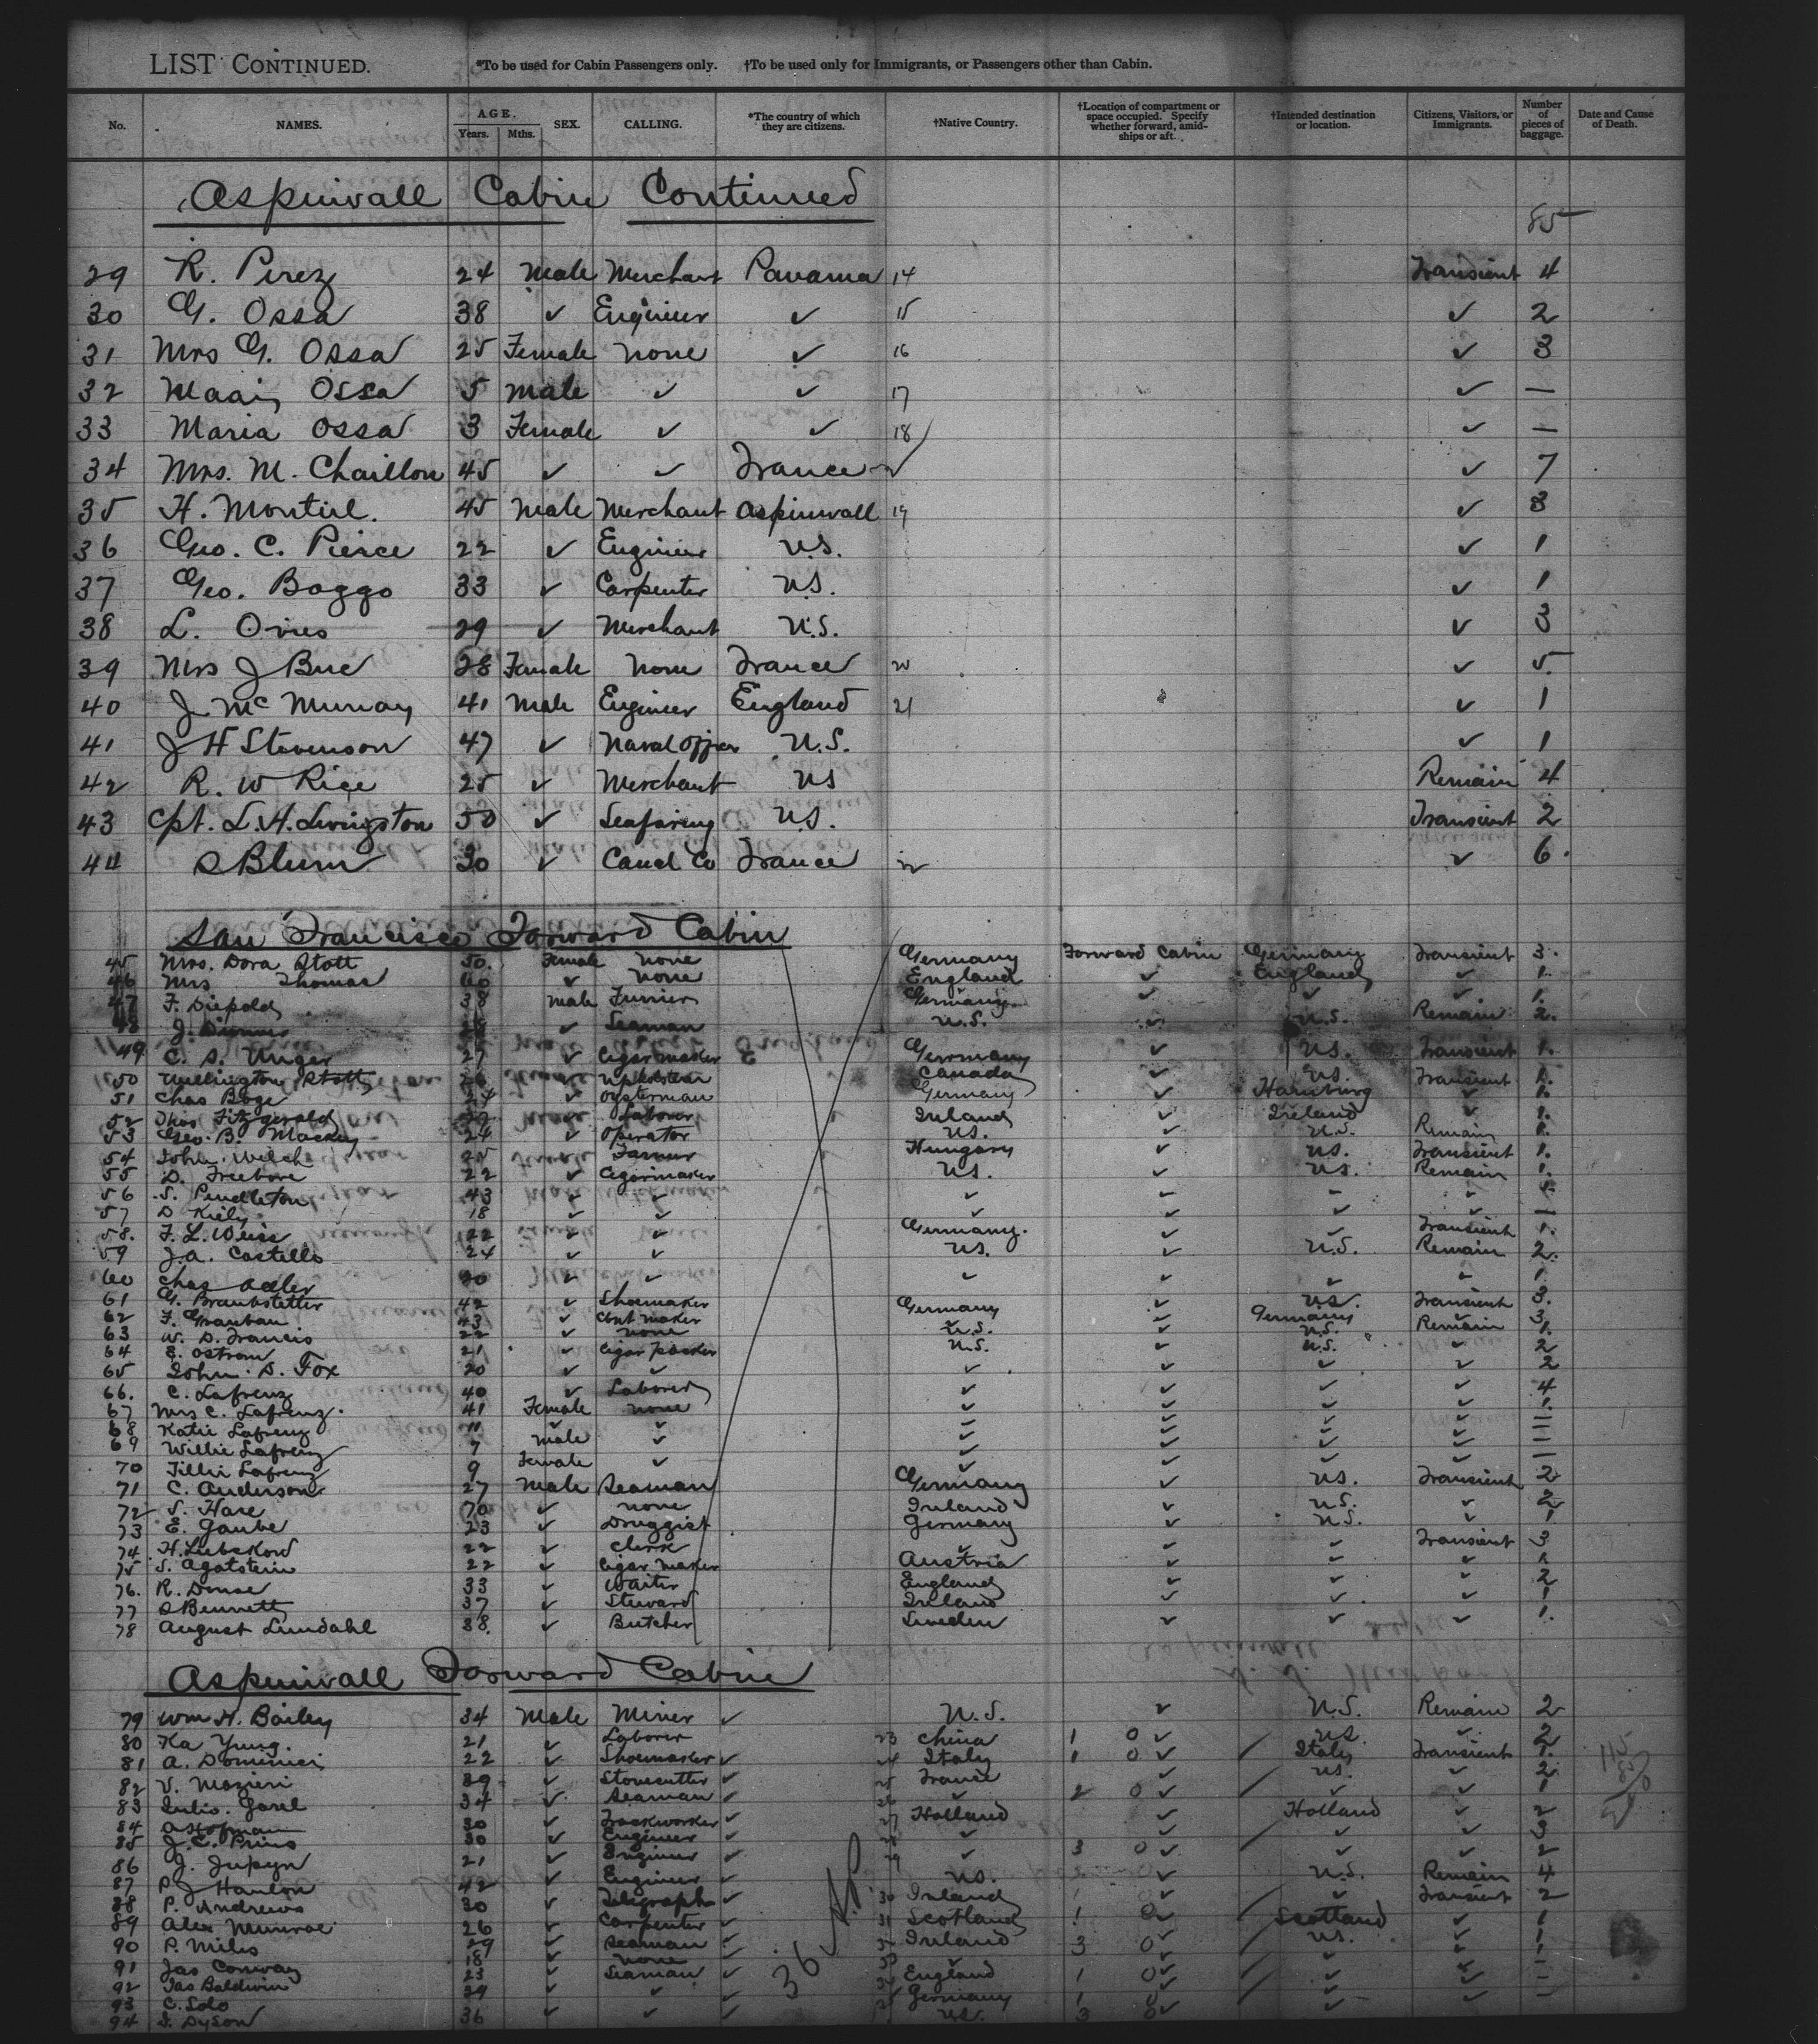 LIST CONTINUED. *To be used for Cabin Passengers only. †To be used only for Immigrants, or Passengers other than Cabin.
No. NAMES. AGE. Years. Mths. SEX. CALLING. *The country of which they are citizens. †Native Country. †Location of compartment or space occupied. Specify whether forward, amidships or aft. †Intended destination or location. Citizens, Visitors, or Immigrants. Number of pieces of baggage. Date and Cause of Death.
Aspinwall Cabin Continued
85
29 R. Perez 24 Male Merchant Panama 14 Transient 4
30 G. Ossa 38 ✓ Engineer ✓ 15 ✓ 2
31 Mrs G. Ossa 25 Female none ✓ 16 ✓ 3
32 Ossa 5 Male ✓ ✓ 17 ✓ —
33 Maria Ossa 3 Female ✓ ✓ 18 ✓ —
34 Mrs. M. Chaillon 45 ✓ ✓ France ✓ 7
35 H. Montiel. 45 Male Merchant Aspinwall 19 ✓ 3
36 Geo. C. Pierce 22 ✓ Engineer U.S. ✓ 1
37 Geo. Boggs 33 ✓ Carpenter U.S. ✓ 1
38 L. 29 ✓ Merchant U.S. ✓ 3
39 Mrs J Bue 28 Female None France 20 ✓ 5
40 J McMurray 41 Male Engineer England 21 ✓ 1
41 J H Stevenson 47 ✓ Naval Officer U.S. ✓ 1
42 R. W Rice 25 ✓ Merchant US Remain 4
43 Cpt. L. H. Livingston 50 ✓ Seafaring U.S. Transient 2
44 S Blum 30 ✓ Canal Co France 22 ✓ 6.
San Francisco Forward Cabin
45 Mrs. Dora Stott 50. Female none Germany Forward Cabin Germany Transient 3.
46 Mrs Thomas 60 ✓ none England ✓ England ✓ 1.
47 F. Diepold 38 Male Germany ✓ ✓ ✓ 1.
48 J. ✓ Seaman U.S. ✓ U.S. Remain 2.
49 C. S. Unger 27 ✓ Cigar maker Germany ✓ US. Transient 1.
50 Wellington Stott 26 ✓ Upholsterer Canada ✓ US. Transient 1.
51 Chas Boge 24 ✓ Oysterman Germany ✓ Hamburg ✓ 1.
52 Thos Fitzgerald ✓ Laborer Ireland ✓ Ireland ✓ 1.
53 Geo. B. Mackey 24 ✓ Operator US. ✓ U.S. Remain 1.
54 John Welch 25 Farmer Hungary ✓ US. Transient 1.
55 D. Freebore 22 ✓ Cigarmaker US. ✓ US. Remain 1.
56 S. Pendleton 43 ✓ ✓ ✓ ✓ ✓ ✓
57 D Kiely 18 ✓ ✓ ✓ ✓ ✓ ✓ —
58. F. L. Weiss 22 ✓ ✓ Germany. ✓ ✓ Transient 1.
59 J. A. Costello 24 ✓ ✓ US. ✓ U.S. Remain 2.
60 Chas Adler 20 ✓ ✓ ✓ ✓ ✓ ✓ 1.
61 G. Braubstetter 42 ✓ Shoemaker Germany ✓ US. Transient 3.
62 F. Grauban 43 ✓ Cbnt maker ✓ ✓ Germany ✓ 3
63 W. S. Francis 22 ✓ none U.S. ✓ U.S. Remain 1.
64 E. Ostrom 21 ✓ Cigar packer U.S. ✓ U.S. ✓ 2
65 John S. Fox 20 ✓ ✓ ✓ ✓ ✓ ✓ 2
66. C. Lafrenz 40 ✓ Laborer ✓ ✓ ✓ ✓ 4
67 Mrs C. Lafrenz. 41 Female none ✓ ✓ ✓ ✓ 1.
68 Katie Lafrenz 11 ✓ ✓ ✓ ✓ ✓ ✓ —
69 Willie Lafrenz 7 Male ✓ ✓ ✓ ✓ ✓ —
70 Tillie Lafrenz 9 Female ✓ ✓ ✓ ✓ ✓ —
71 C. Anderson 27 Male Seaman Germany ✓ US. Transient 2
72 S. Hare 70 ✓ none Ireland ✓ U.S. ✓ 2
73 E. Gaube 23 ✓ Druggist Germany ✓ U.S. ✓ 1
74 H. Liebskow 22 ✓ Clerk ✓ ✓ ✓ Transient 3
75 S. Agatstein 22 ✓ Cigar maker Austria ✓ ✓ ✓ 1.
76. R. Douse 33 ✓ Waiter England ✓ ✓ ✓ 2
77 S Bennett 37 ✓ Steward Ireland ✓ ✓ ✓ 1
78 August Lundahl 38. ✓ Butcher Sweden ✓ ✓ ✓ 1.
Aspinwall Forward Cabin
79 Wm H. Bailey 34 Male Miner ✓ U.S. ✓ U.S. Remain 2
80 Ka Yung. 21 ✓ Laborer 23 China 1 0 ✓ US. ✓ 2
81 A. Dominici 22 ✓ Shoemaker ✓ 24 Italy 1 0 ✓ Italy Transient 1.
82 V. Mazieri 39 ✓ Stonecutter ✓ 25 France ✓ US. ✓ 2
83 Julio. Garel 34 ✓ Seaman ✓ 26 ✓ 2 0 ✓ ✓ ✓ 1
84 A Hofman 30 ✓ Trackworker ✓ 27 Holland ✓ Holland ✓ 2
85 J. C. Prins 30 ✓ Engineer ✓ 28 ✓ ✓ ✓ ✓ 3
86 J. Jupyn 21 ✓ Engineer ✓ 29 ✓ 3 0 ✓ ✓ ✓ 2
87 P. J Hanlon 42 ✓ Engineer ✓ US. 0 ✓ U.S. Remain 4
88 P. Andrews 30 ✓ Telegraph ✓ 30 Ireland 1 ✓ ✓ Transient 2
89 Alex Munroe 26 ✓ Carpenter ✓ 31 Scotland 1 0 ✓ Scotland ✓ 1
90 P. Miles 29 ✓ Seaman ✓ 32 Ireland 3 0 ✓ US. ✓ 1
91 Jas Conway 18 ✓ none ✓ 33 ✓ ✓ ✓ ✓ 1
92 Jas Baldwin 23 ✓ Seaman ✓ 34 England 1 0 ✓ ✓ ✓ —
93 C. Solo 39 ✓ ✓ ✓ 35 Germany 1 0 ✓ ✓ ✓ —
94 S. Dyson 36 ✓ ✓ ✓ US. 3 0 ✓ ✓
36